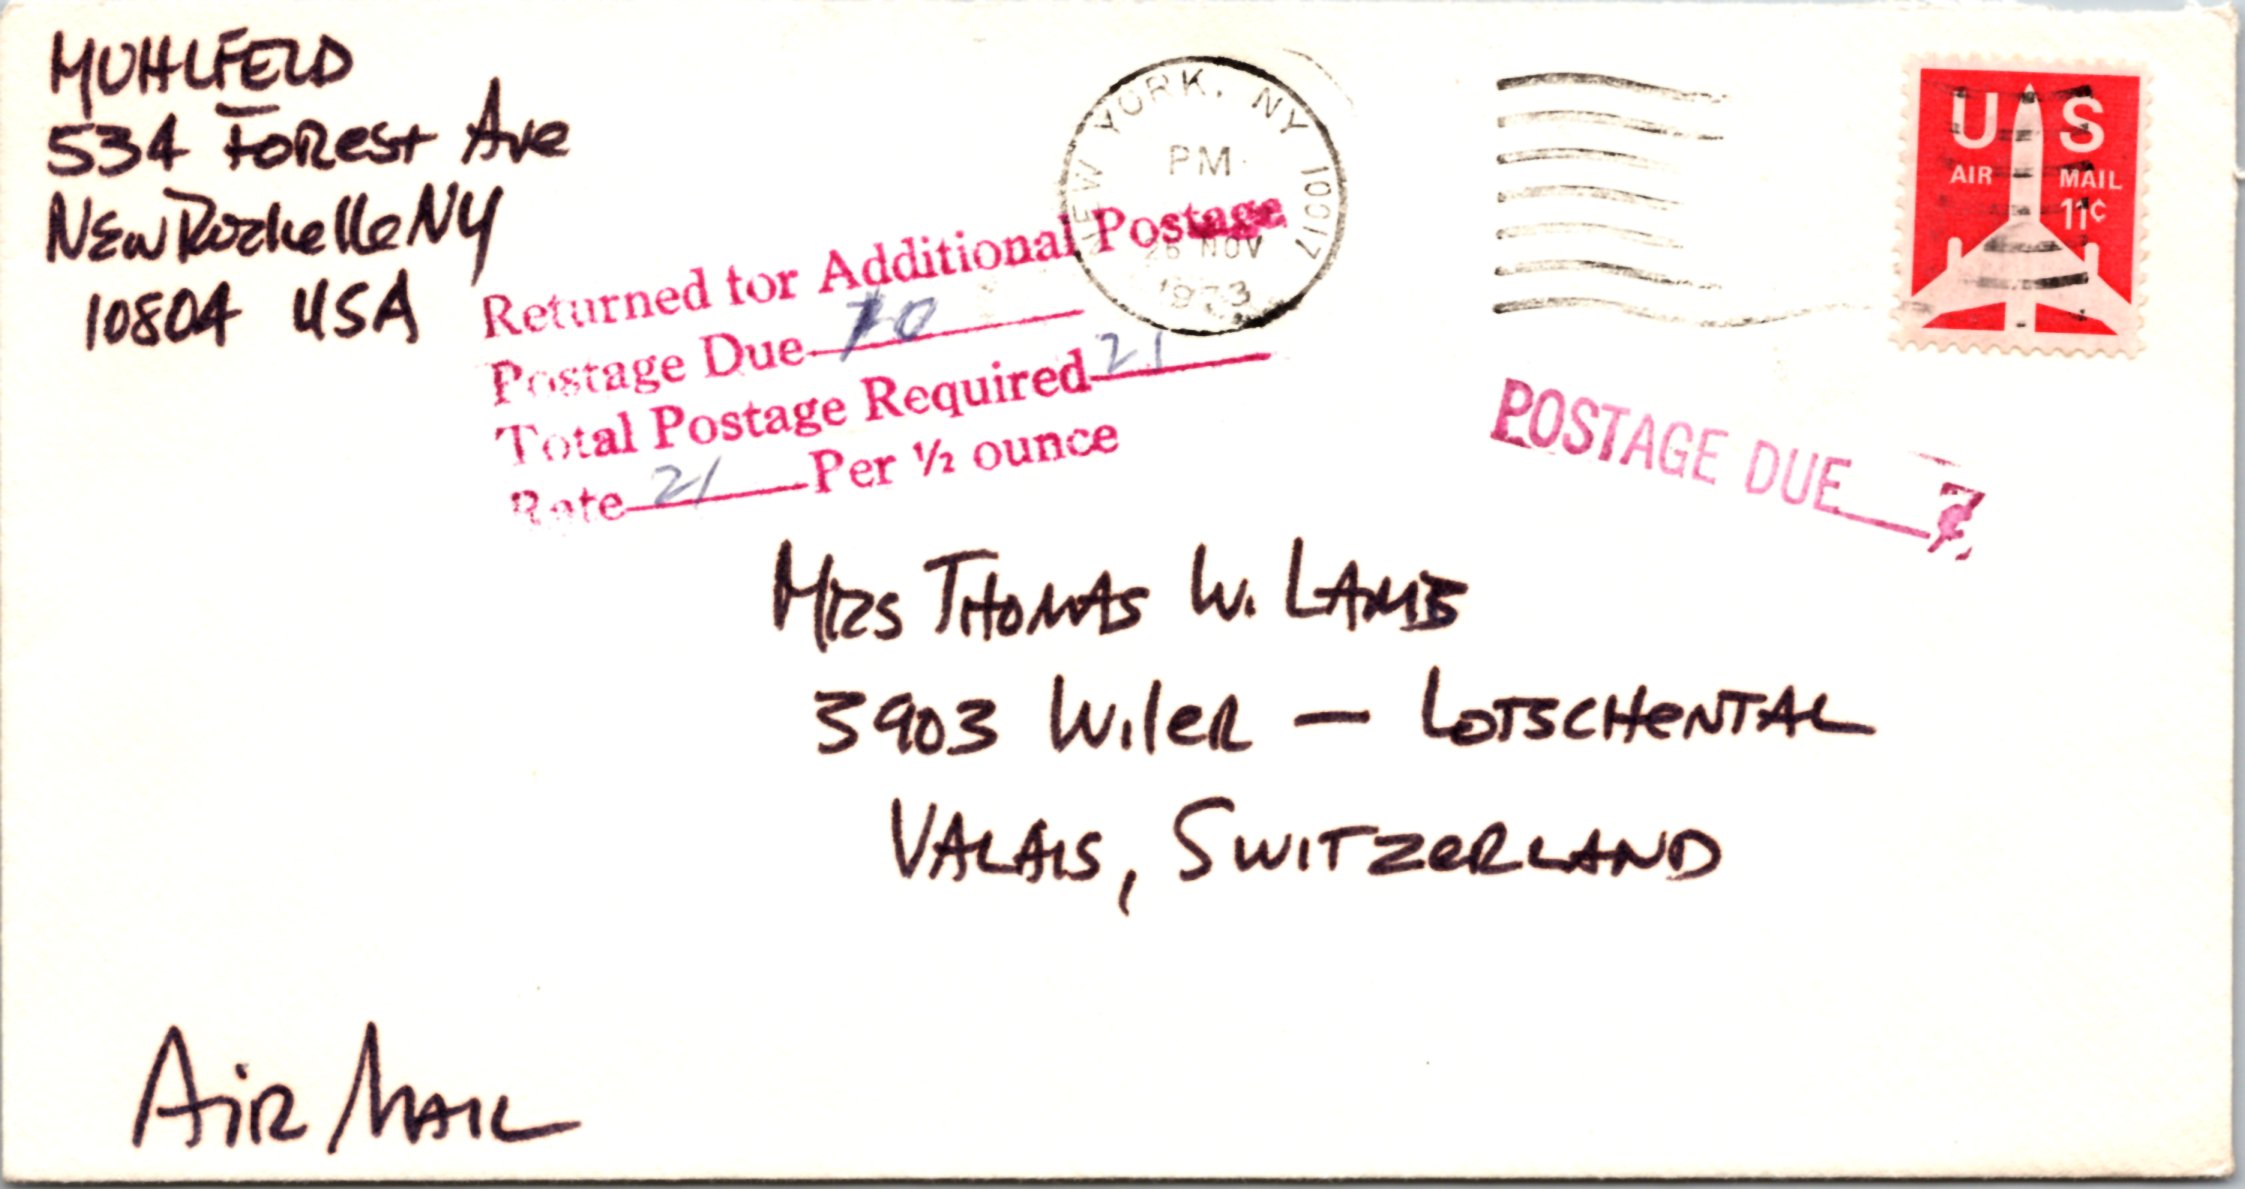 MUHLFELD
534 Forest Ave
New Rochelle NY
10804 USA
NEW YORK, NY 10017
PM
NOV
1973
U S
AIR MAIL
11¢
Returned for Additional Postage
Postage Due 10
Total Postage Required 21
Rate 21 Per ½ ounce
POSTAGE DUE ¢
Mrs Thomas W. Lamb
3903 Wiler — Lotschental
Valais, Switzerland
Air Mail